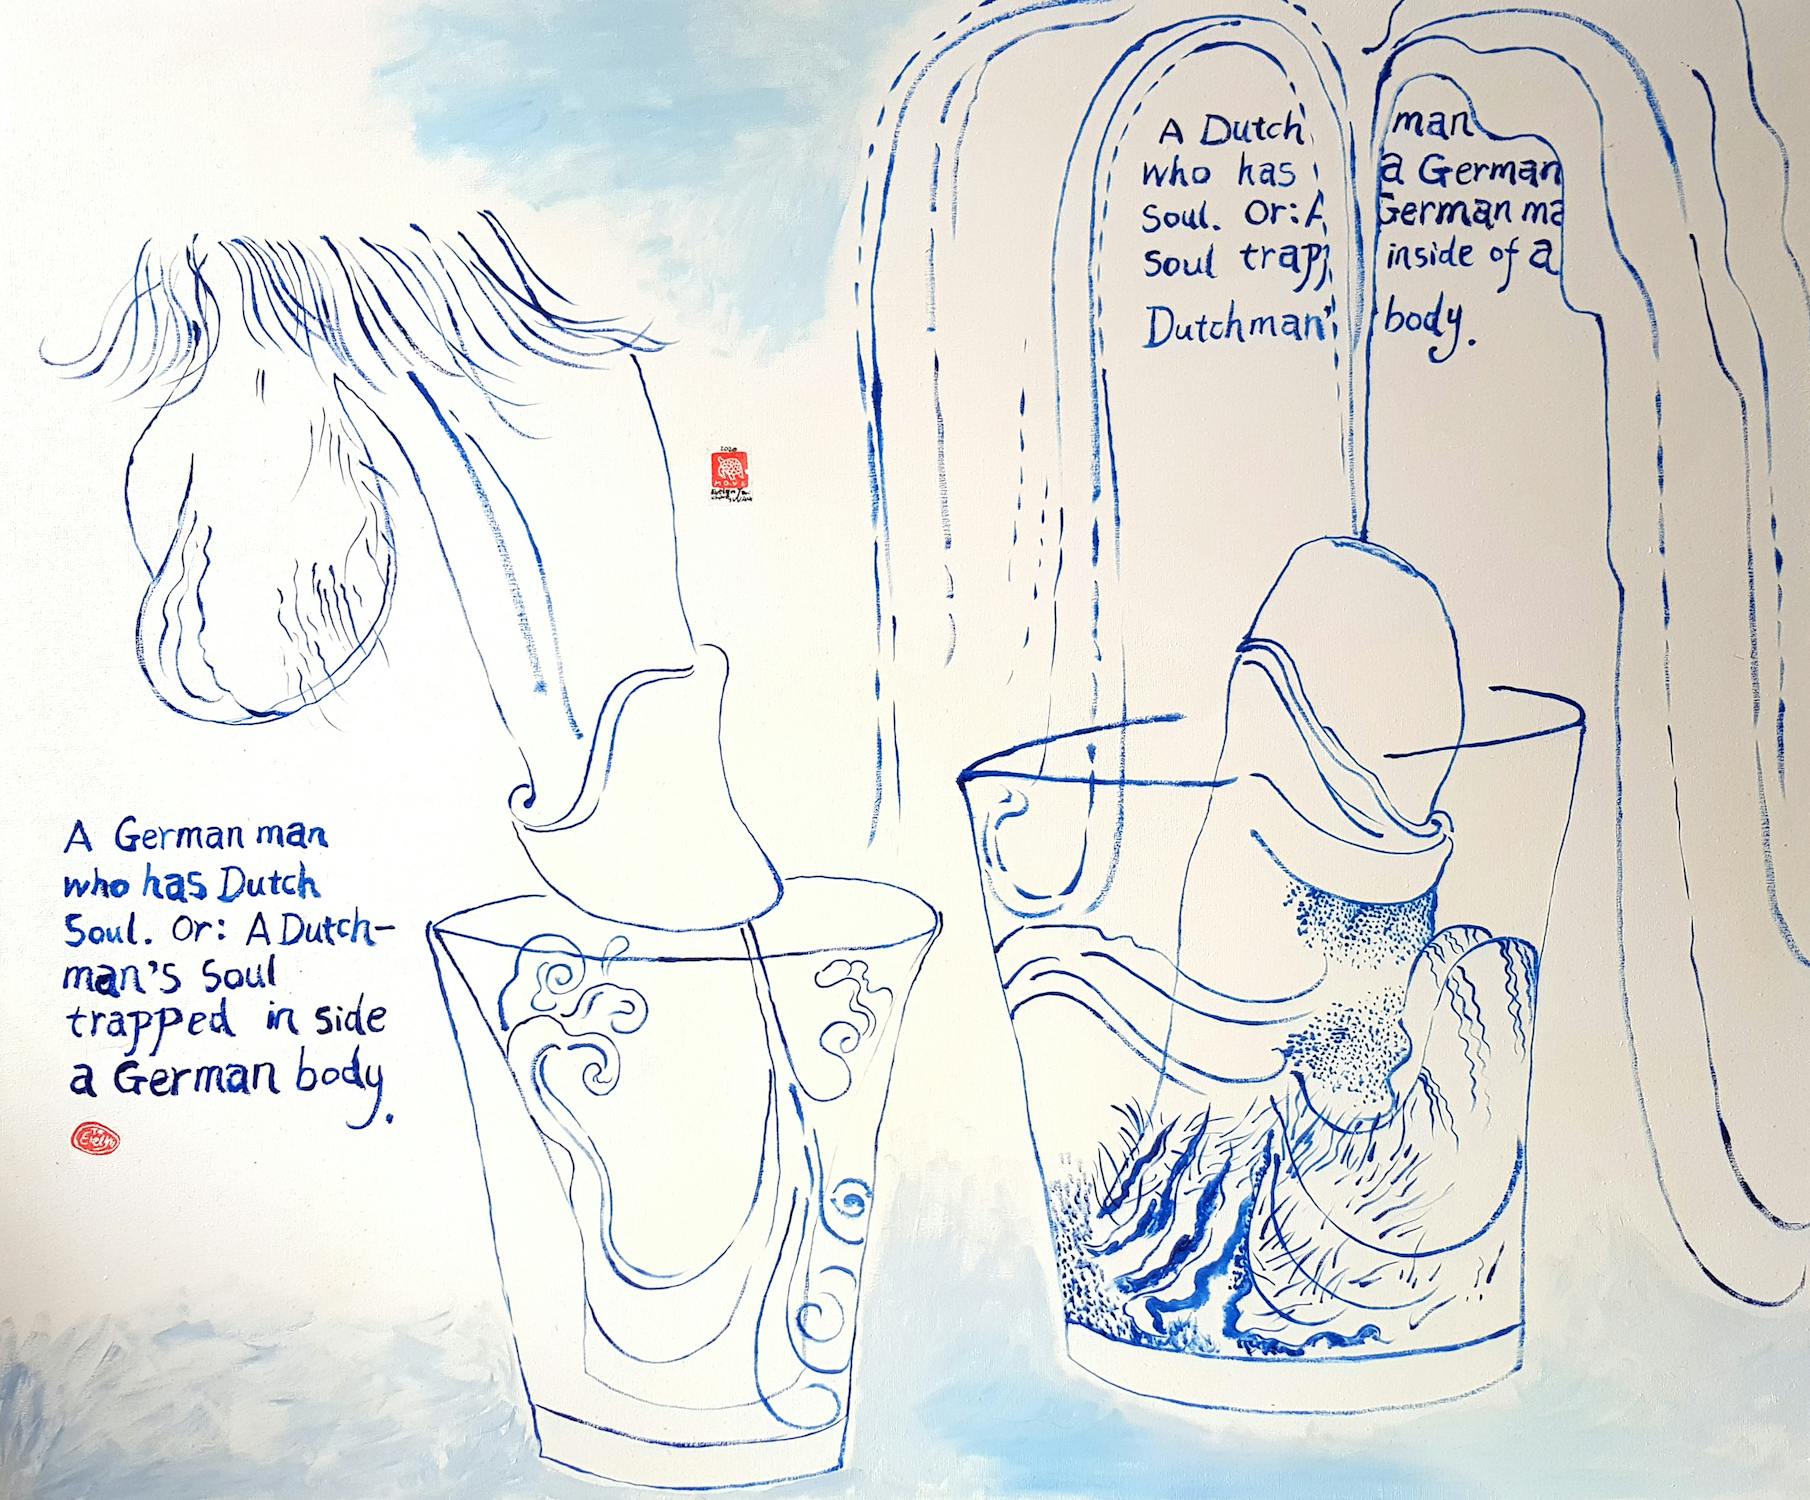 A German man
who has Dutch
Soul. Or: A Dutch-
man's Soul
trapped in side
a German body.
To
Evelyn
2020
MOVE
A Dutch man
who has a German
Soul. Or: A German ma
Soul trapp inside of a
Dutchman' body.